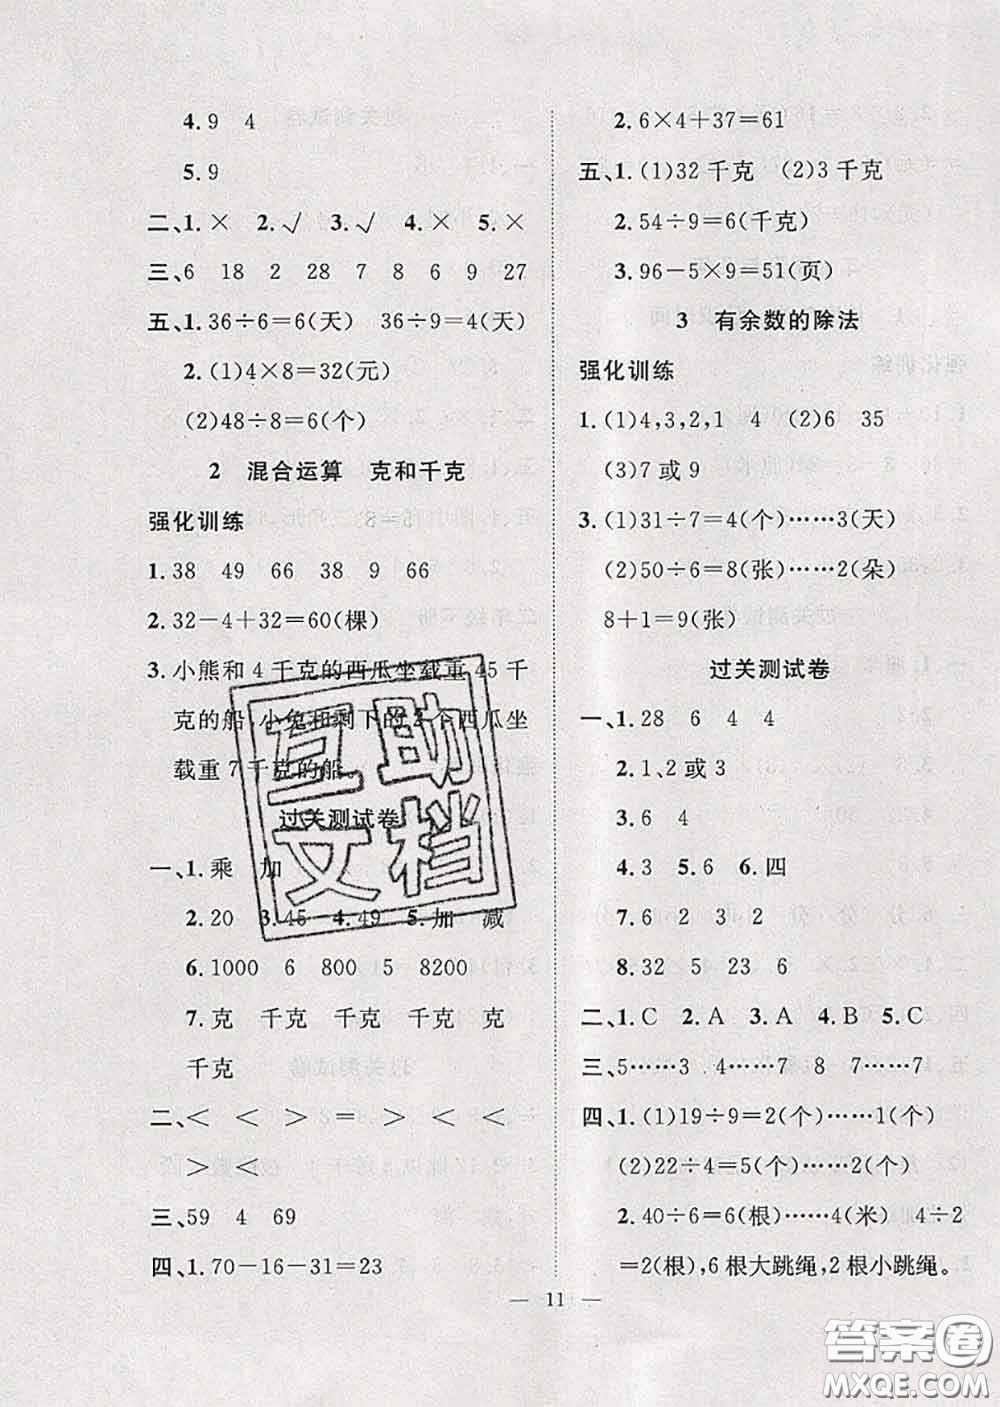 4.9 4
5.9
二、1.× 2.√ 3.√ 4.× 5.×
三、6 18 2 28 7 8 6 9 27
五、1.36÷6=6(天) 36÷9=4(天)
2.(1)4×8=32(元)
(2)48÷8=6(个)
2 混合运算 克和千克
强化训练
1.38 49 66 38 9 66
2.32-4+32=60(棵)
3.小熊和4千克的西瓜坐载重45千
克的船,小兔和剩下的2个西瓜坐
载重7千克的船。
过关测试卷
一、1.乘 加
2.20 3.45 4.49 5.加 减
6.1000 6 800 5 8200
7.克 千克 千克 千克 克
千克
二、< < > = > < <
> <
三、59 4 69
四、1.70-16-31=23
2.6×4+37=61
五、1.(1)32千克 (2)3千克
2.54÷9=6(千克)
3.96-5×9=51(页)
3 有余数的除法
强化训练
1.(1)4,3,2,1 4 (2)6 35
(3)7或9
3.(1)31÷7=4(个)……3(天)
(2)50÷6=8(张)……2(朵)
8+1=9(张)
过关测试卷
一、1.28 6 4 4
2.1、2或3
3.6 4
4.3 5.6 6.四
7.6 2 3 2
8.32 5 23 6
二、1.C 2.A 3.A 4.B 5.C
三、5……3 7……7 8 7……7
四、1.(1)19÷9=2(个)……1(个)
(2)22÷4=5(个)……2(个)
2.40÷6=6(根)……4(米) 4÷2
=2(根),6根大跳绳,2根小跳绳。
— 11 —
互助
文档
答案卷
MXQE.COM